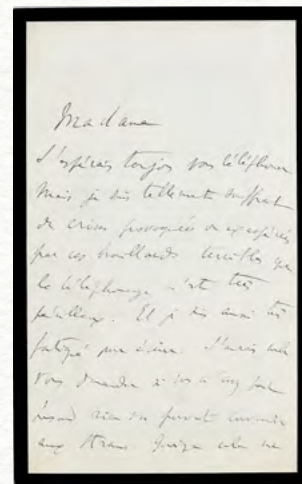 Madame
J'espérais toujours vous téléphoner
Mais je suis tellement souffrant
de crises provoquées ou exaspérées
par ces brouillards terribles que
le téléphonage m'est très
périlleux. Et je suis aussi très
fatigué pour écrire. J'aurais voulu
vous demander si
rien ne pouvait convenir
aux Straus. Puisque cela ne